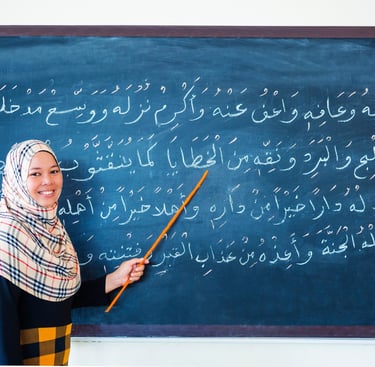 وَعَافِهِ وَاعْفُ عَنْهُ وَأَكْرِمْ نُزُلَهُ وَوَسِّعْ مَدْخَلَهُ
وَالْبَرَدِ وَنَقِّهِ مِنَ الْخَطَايَا كَمَا
لْهُ دَارًا خَيْرًا مِنْ دَارِهِ وَأَهْلًا خَيْرًا مِنْ أَهْلِهِ
لْهُ الْجَنَّةَ وَأَعِذْهُ مِنْ عَذَابِ الْقَبْرِ وَفِتْنَتِهِ